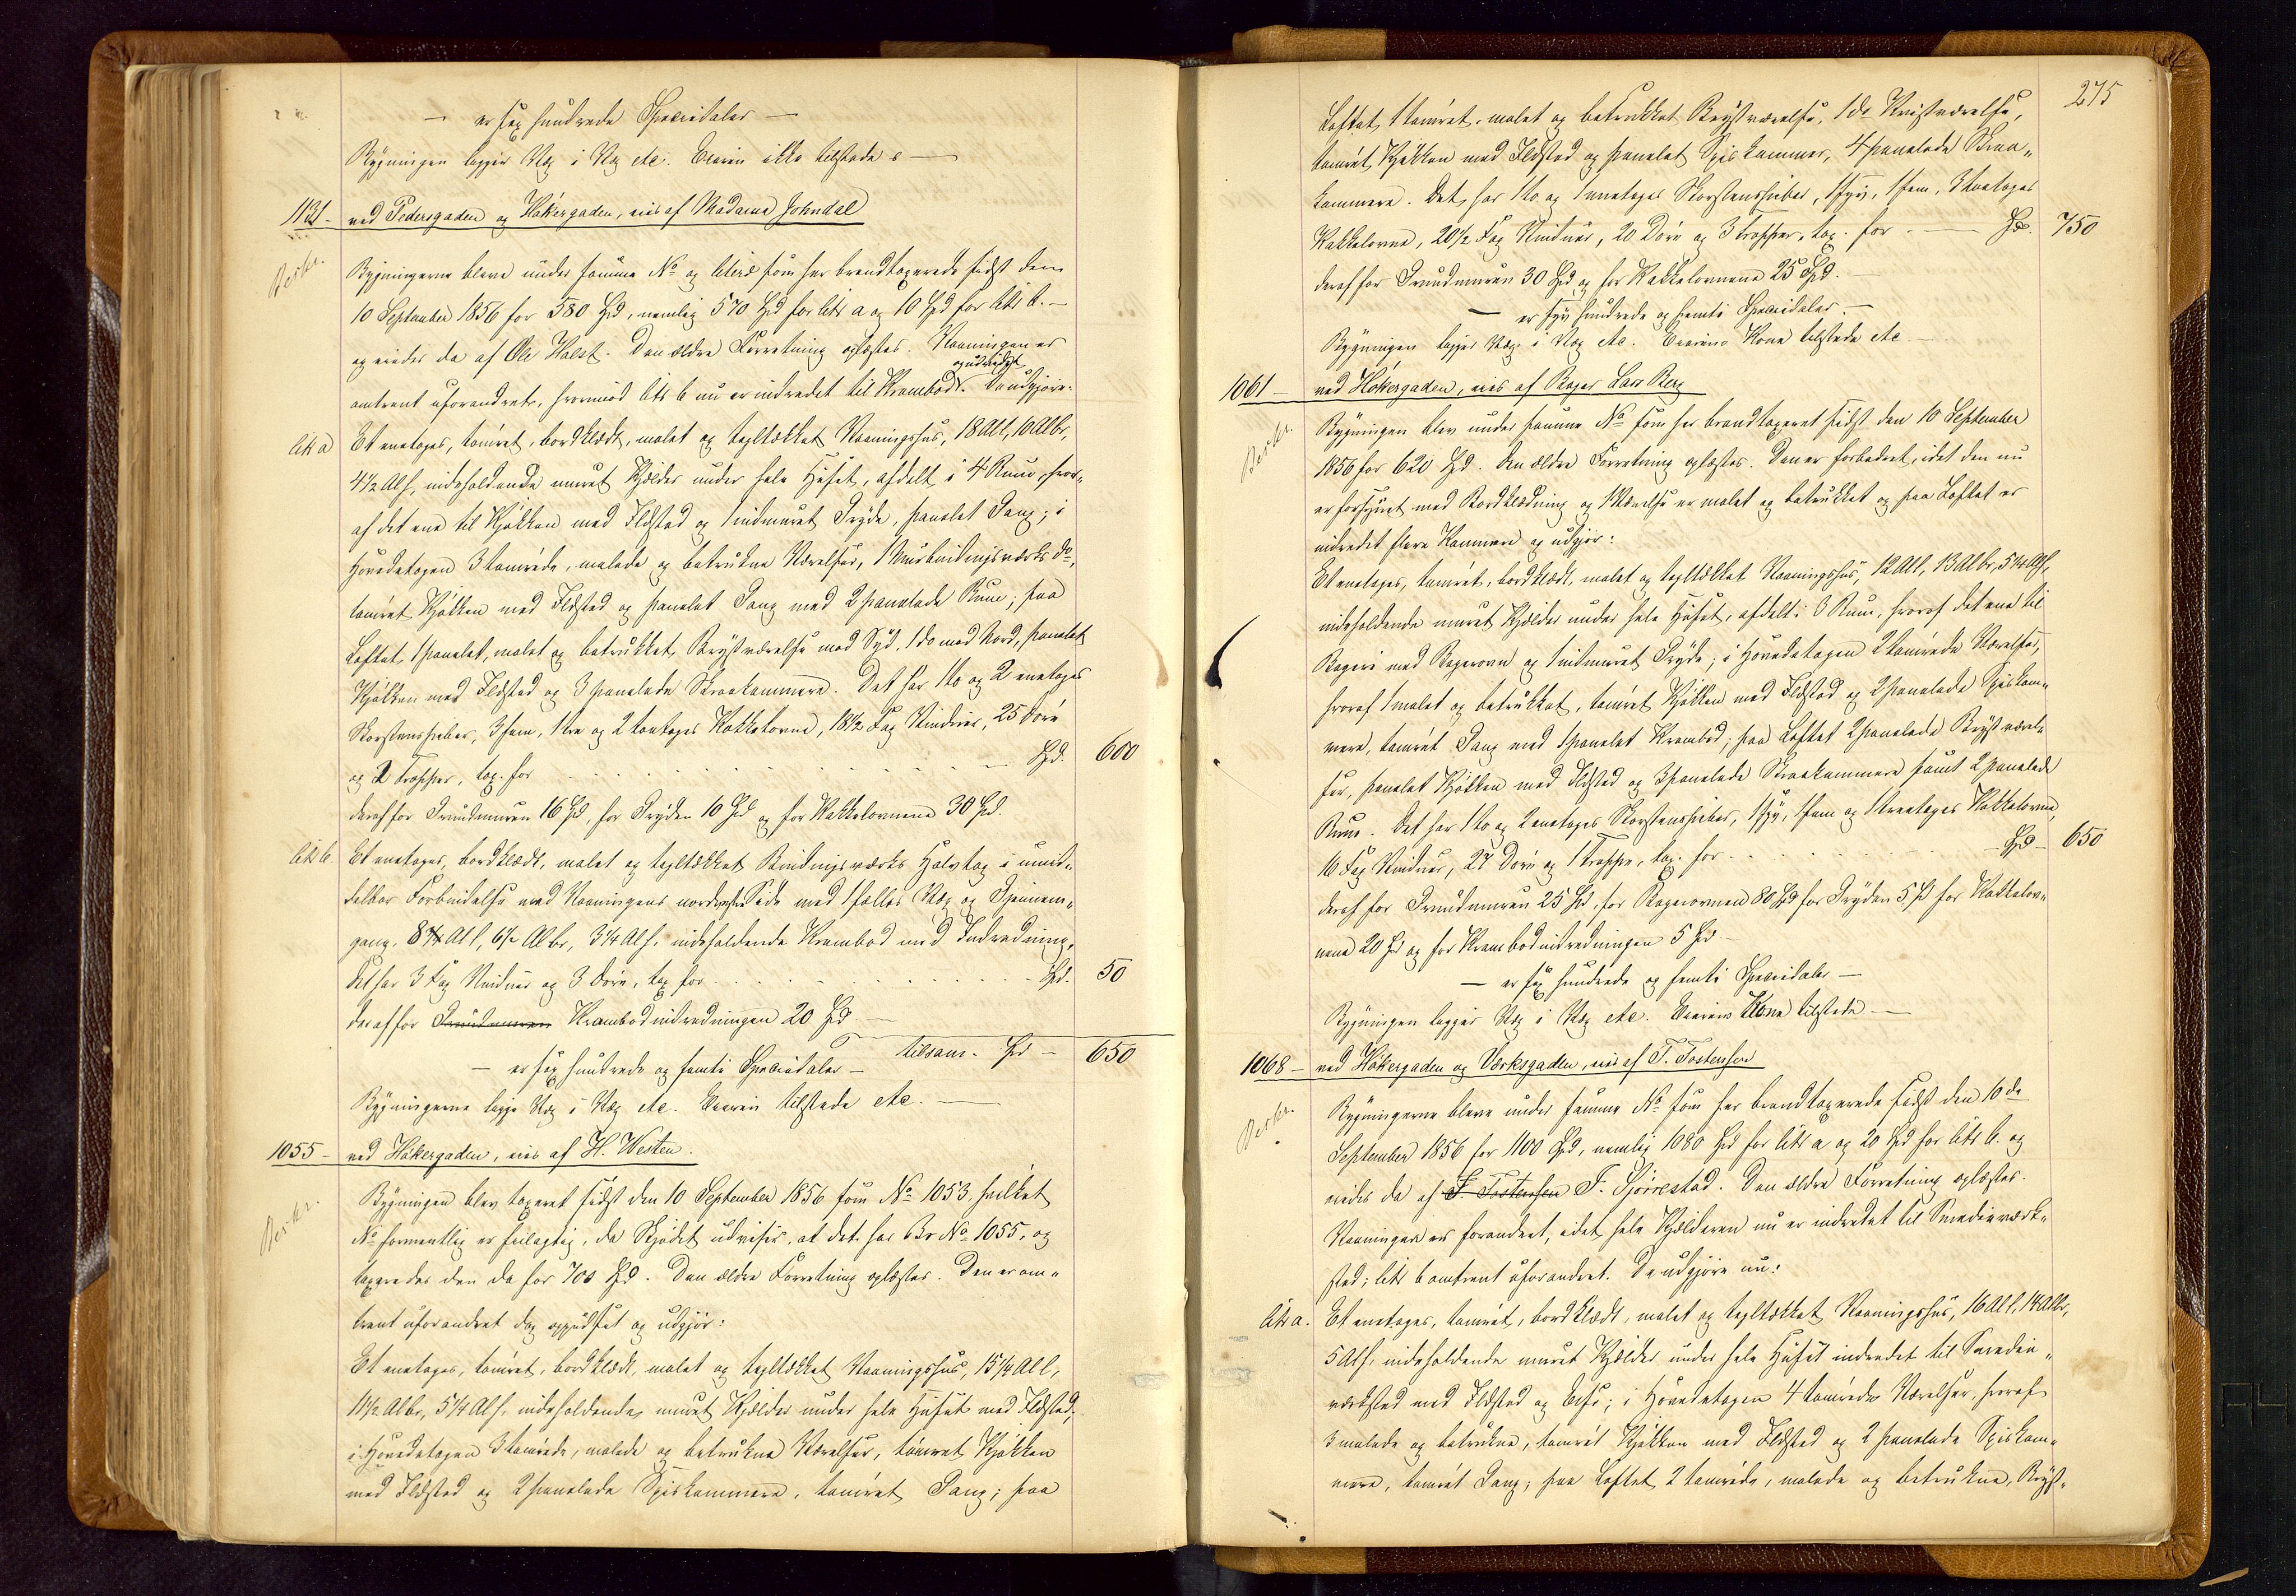 — er sex hundrede Speciedaler —
Bygningen ligger Væg i Væg etc. Eieren ikke tilstede
1131 - ved Pedersgaden og Høkergaden, eies af Madame Johndal
Beskr.
Bygningerne bleve under samme No og litræ som her brandtaxerede sidst den
10 September 1856 for 580 Spd, nemlig 570 Spd for litr a og 10 Spd for litr b. —
og eiedes da af Ole Holst. Den ældre Forretning oplæstes. Vaaningen er
og udvidet
omtrent uforandret, hvorimod litr b nu er indredet til Krambod. De udgjøre:
litr a) Et enetages, tømret, bordklædt, malet og tegltækket Vaaningshus, 18 All, 10 Albr,
4½ Alh, indeholdende muret Kjælder under hele Huset, afdelt i 4 Rum, hvor-
af det ene til Kjøkken med Ildsted og 1 indmuret Gryde, panelet Gang; i
Hovedetagen 3 tømrede, malede og betrukne Værelser, 1 Muurbindingsværks do,
tømret Kjøkken med Ildsted og panelet Gang med 2 panelede Rum; paa
Loftet 1 panelet, malet og betrukket Brystværelse mod Syd, 1 do mod Nord, panelet
Kjøkken med Ildsted og 3 panelede Skraakammere. Det har 1 to og 2 enetages
Skorstenspiber, 3 fem, 1 tre og 2 toetages Kakkelovne, 18½ Fag Vinduer, 25 Døre
og 2 Trapper, tax. for . . . . . . . . . . — Spd. 600
deraf for Grundmuren 16 Spd, for Gryden 10 Spd og for Kakkelovnene 30 Spd.
litr b. Et enetages, bordklædt, malet og tegltækket Bindingsværks Halvtag i umid-
delbar Forbindelse med Vaaningens nordvestre Side med 1 fælles Væg og Gjennem-
gang, 8¼ All, 6½ Albr, 3¼ Alh, indeholdende Krambod med Indredning.
Det har 3 Fag Vinduer og 3 Døre, tax for . . . . . . . . — Spd. 50
deraf for Grundmuren Krambodindredningen 20 Spd —
— er sex hundrede og femti Speciedaler — tilsam. Spd — 650
Bygningerne ligge Væg i Væg etc. Eieren tilstede etc. —
1055 - ved Høkergaden, eies af H. Westen.
Beskr.
Bygningen blev taxeret sidst den 10 September 1856 som No 1053, hvilket
No formentlig er feilagtig, da Skjødet udviser, at det har Br No 1055, og
taxeredes den da for 700 Spd. Den ældre Forretning oplæstes. Den er om-
trent uforandret dog oppudset og udgjør:
Et enetages, tømret, bordklædt, malet og tegltækket Vaaningshus, 15¼ All,
11½ Albr, 5¼ Alh, indeholdende, muret Kjælder under hele Huset med Ildsted;
i Hovedetagen 3 tømrede, malede og betrukne Værelser, tømret Kjøkken
med Ildsted og 2 panelede Spiskammere, tømret Gang; paa
275
Loftet 1 tømret, malet og betrukket Brystværelse, 1 do Kvistværelse,
tømret Kjøkken med Ildsted og panelet Spiskammer, 4 panelede Skraa-
kammere. Det har 1 to og 1 enetages Skorstenspiber, 1 syv, 1 fem, 3 toetages
Kakkelovne, 20½ Fag Vinduer, 20 Døre og 3 Trapper, tax. for . — Spd. 750
deraf for Grundmuren 30 Spd og for Kakkelovnene 25 Spd. —
— er syv hundrede og femti Speciedaler. —
Bygningen ligger Væg i Væg etc. Eierens Kone tilstede etc —
1061 - ved Høkergaden, eies af Bager Lars Berg
Beskr.
Bygningen blev under samme No som her brandtaxeret sidst den 10 September
1856 for 620 Spd. Den ældre Forretning oplæstes. Den er forbedret, idet den nu
er forsynet med Bordklædning og 1 Værelse er malet og betrukket og paa Loftet er
indredet flere Kammere og udgjør:
Et enetages, tømret, bordklædt, malet og tegltækket Vaaningshus, 12 All, 13 Albr, 5¼ Alh,
indeholdende muret Kjælder under hele Huset, afdelt i 3 Rum, hvoraf det ene til
Bageri med Bagerovn og 1 indmuret Gryde; i Hovedetagen 2 tømrede Værelser,
hvoraf 1 malet og betrukket, tømret Kjøkken med Ildsted og 2 panelede Spiskam-
mere, tømret Gang med 1 panelet Krambod; paa Loftet 2 panelede Brystværel-
ser, panelet Kjøkken med Ildsted og 3 panelede Skraakammere samt 2 panelede
Rum. Det har 1 to og 2 enetages Skorstenspiber, 1 syv, 1 fem og 1 treetages Kakkelovne,
16 Fag Vinduer, 27 Døre og 1 Trappe, tax. for . . . . . . . — Spd — 650
deraf for Grundmuren 25 Spd, for Bagerovnen 80 Spd for Gryden 5 Spd for Kakkelov-
nene 20 Spd og for Krambodindredningen 5 Spd —
— er sex hundrede og femti Speciedaler —
Bygningen ligger Væg i Væg etc. Eierens Kone tilstede —
1068 - ved Høkergaden og Værksgaden, eies af T. Tostensen
Beskr.
Bygningerne bleve under samme No som her brandtaxerede sidst den 10 de
September 1856 for 1100 Spd, nemlig 1080 Spd for litr a og 20 Spd for litr b. og
eiedes da af T. Tostensen F. Sjørrestad. Den ældre Forretning oplæstes.
Vaaningen er forandret, idet hele Kjælderen nu er indredet til Smedieværk-
sted; litr b omtrent uforandret. De udgjøre nu:
litr a. Et enetages, tømret, bordklædt, malet og tegltækket Vaaningshus, 16 All, 14 Albr,
5 Alh, indeholdende muret Kjælder under hele Huset indredet til Smedie-
værksted med Ildsted og Esse; i Hovedetagen 4 tømrede Værelser, hvoraf
3 malede og betrukne, tømret Kjøkken med Ildsted og 2 panelede Spiskam-
mere, tømret Gang; paa Loftet 2 tømrede, malede og betrukne, Bryst-